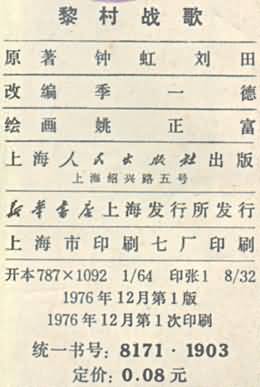 黎村战歌
原著 钟虹 刘田
改编 季一德
绘画 姚正富
上海人民出版社出版
上海绍兴路五号
新华书店上海发行所发行
上海市印刷七厂印刷
开本787×1092 1/64 印张1 8/32
1976年12月第1版
1976年12月第1次印刷
统一书号：8171·1903
定价：0.08元